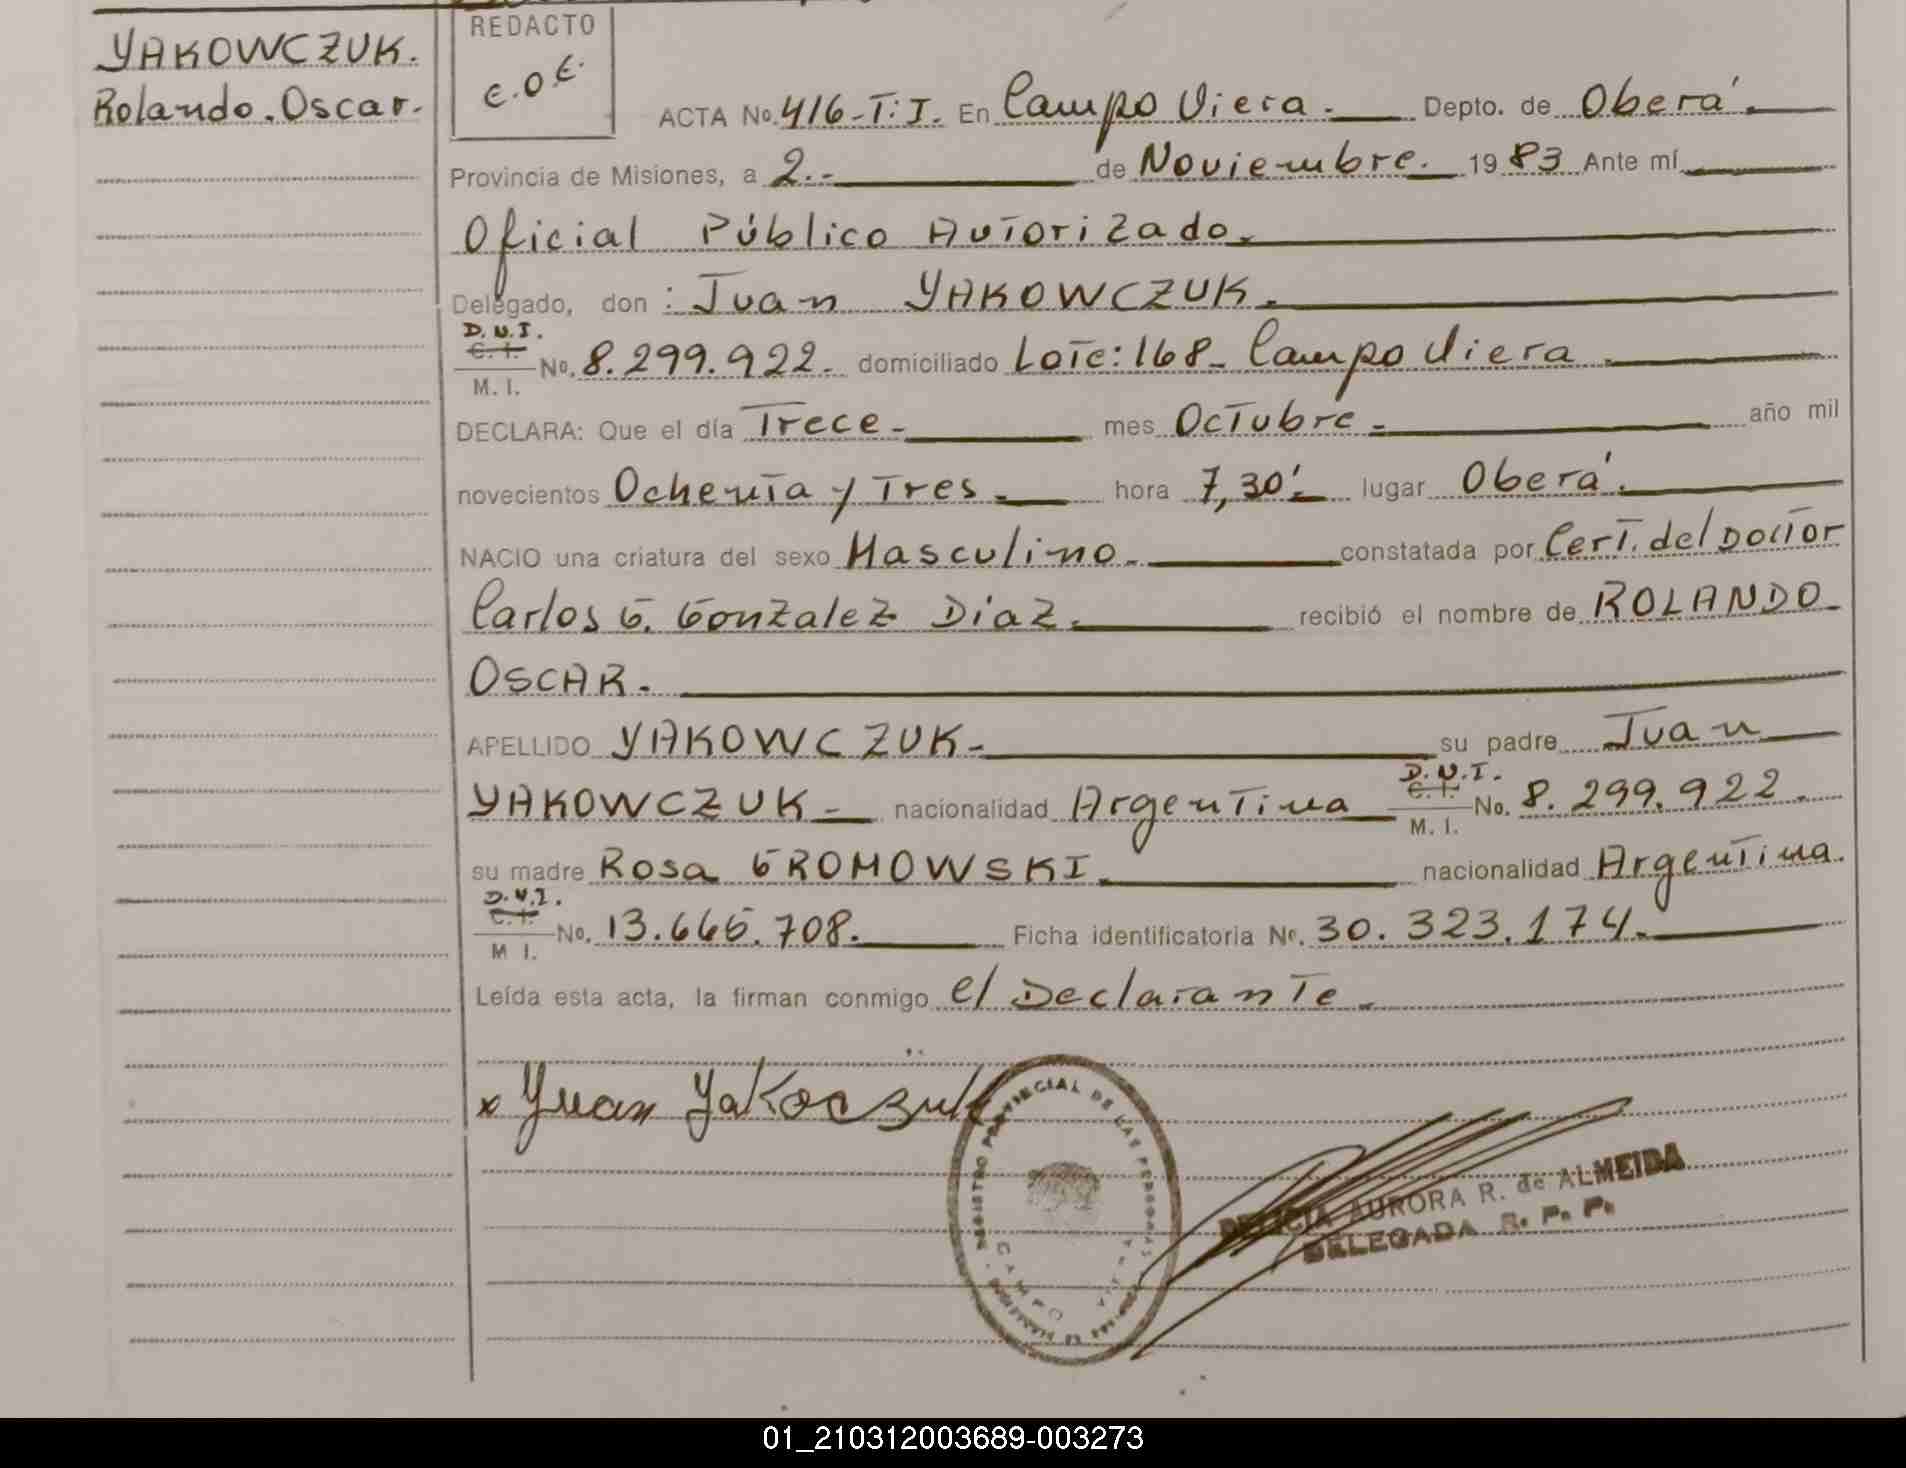 YAKOWCZUK.
Rolando. Oscar.
REDACTO
E.O.E.
ACTA No. 416-T:I. En Campo Viera. Depto. de Oberá.
Provincia de Misiones, a 2.- de Noviembre. 1983 Ante mí
Oficial Público Autorizado.
Delegado, don: Juan YAKOWCZUK.
D.N.I.
C. I.
M. I.
No. 8.299.922. domiciliado Lote: 168- Campo Viera.
DECLARA: Que el día Trece- mes Octubre- año mil
novecientos Ochenta y Tres. hora 7,30'- lugar Oberá.
NACIO una criatura del sexo Masculino. constatada por Cert. del Doctor
Carlos G. Gonzalez Diaz. recibió el nombre de ROLANDO-
OSCAR.
APELLIDO YAKOWCZUK- su padre Juan
YAKOWCZUK- nacionalidad Argentina
D.N.I.
C. I.
M. I.
No. 8.299.922.
su madre Rosa GROMOWSKI. nacionalidad Argentina.
D.N.I.
C. I.
M I.
No. 13.665.708. Ficha identificatoria No. 30.323.174.
Leída esta acta, la firman conmigo el Declarante.
x Yuan Yakoczuk
REGISTRO PROVINCIAL DE LAS PERSONAS
CAMPO
DELICIA AURORA R. de ALMEIDA
DELEGADA R. P. P.
01_210312003689-003273